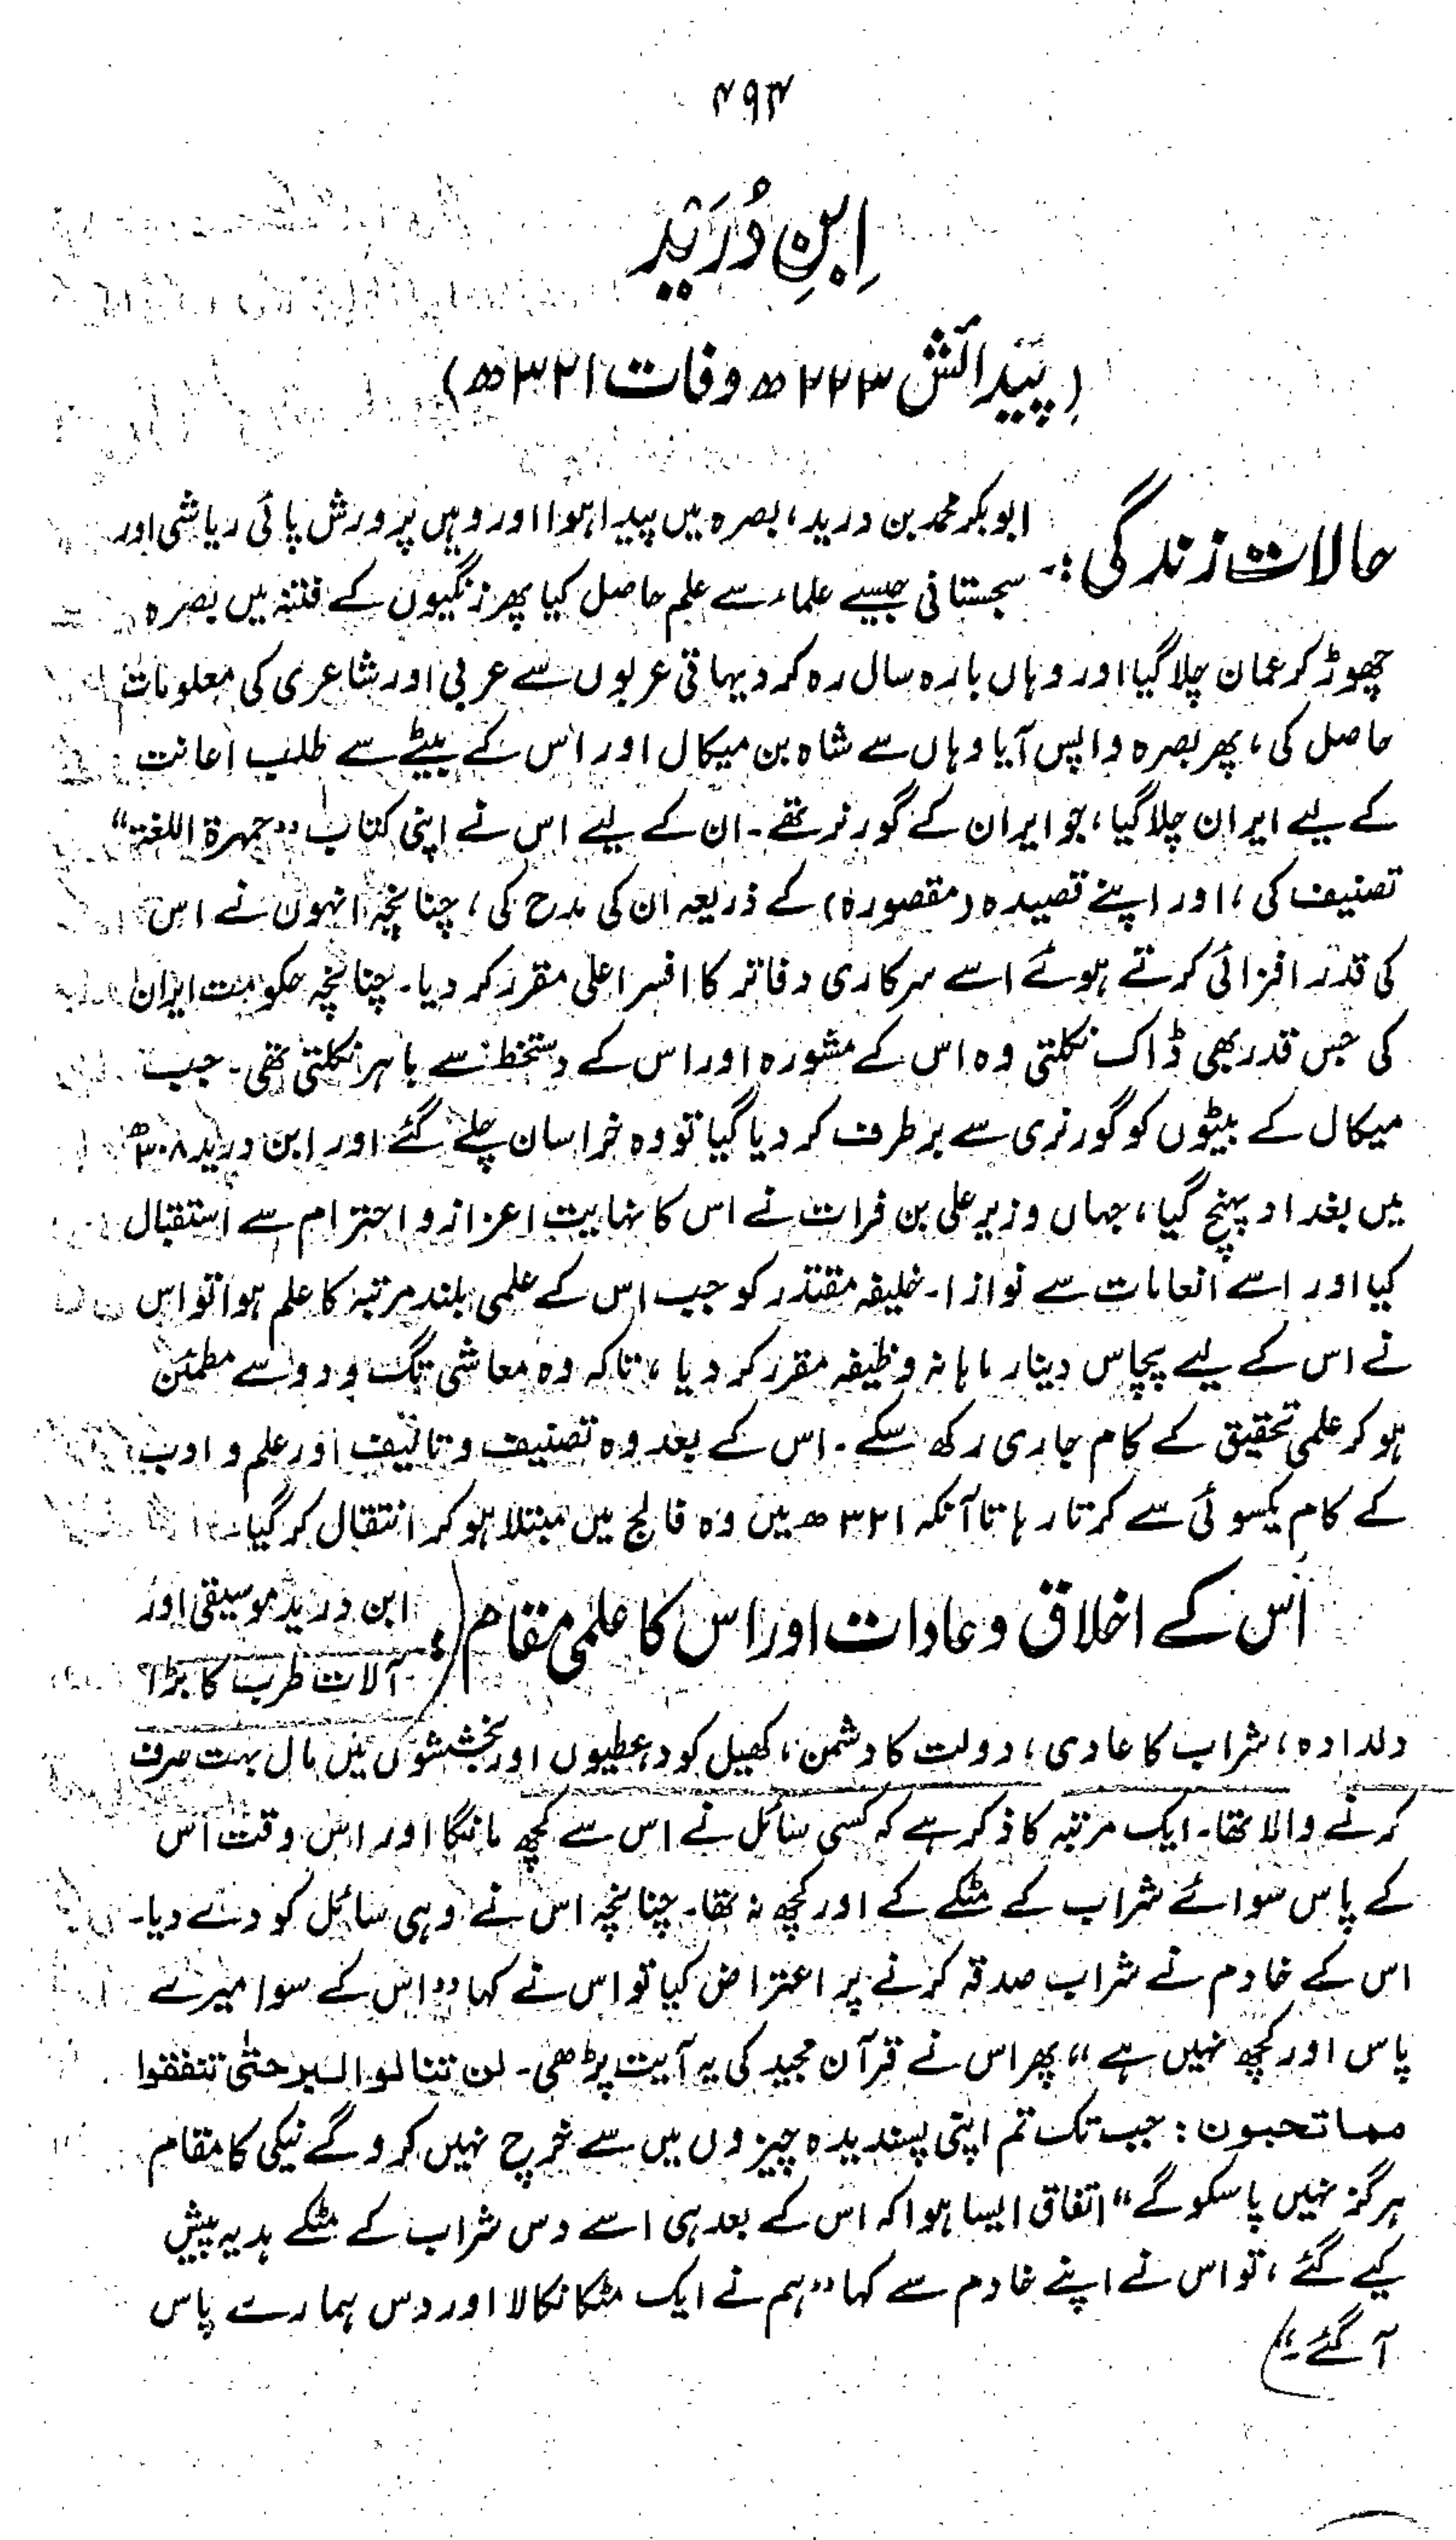 ۴۹۴
اِبنِ دُرَید
(پَیدائش ۲۲۳ھ وفات ۳۲۱ھ)
حالات زندگی :-
ابوبکر محمد بن درید، بصرہ میں پیدا ہوا اور وہیں پرورش پائی ریاشی اور
سجستانی جیسے علماء سے علم حاصل کیا پھر زنگیوں کے فتنہ میں بصرہ
چھوڑ کر عمان چلا گیا اور وہاں بارہ سال رہ کر دیہاتی عربوں سے عربی اور شاعری کی معلومات
حاصل کی، پھر بصرہ واپس آیا وہاں سے شاہ بن میکال اور اس کے بیٹے سے طلب اعانت
کے لیے ایران چلا گیا، جو ایران کے گورنر تھے۔ ان کے لیے اس نے اپنی کتاب ”جمہرۃ اللغۃ“
تصنیف کی، اور اپنے قصیدہ (مقصورہ) کے ذریعہ ان کی مدح کی، چنانچہ انہوں نے اس
کی قدر افزائی کرتے ہوئے اسے سرکاری دفاتر کا افسر اعلی مقرر کر دیا۔ چنانچہ حکومت ایران
کی جس قدر بھی ڈاک نکلتی وہ اس کے مشورہ اور اس کے دستخط سے باہر نکلتی تھی۔ جب
میکال کے بیٹوں کو گورنری سے برطرف کر دیا گیا تو وہ خراسان چلے گئے اور ابن درید ۳۰۸ھ
میں بغداد پہنچ گیا، جہاں وزیر علی بن فرات نے اس کا نہایت اعزاز و احترام سے استقبال
کیا اور اسے انعامات سے نوازا۔ خلیفہ مقتدر کو جب اس کے علمی بلند مرتبہ کا علم ہوا تو اس
نے اس کے لیے پچاس دینار ماہانہ وظیفہ مقرر کر دیا، تاکہ وہ معاشی تگ و دو سے مطمئن
ہو کر علمی تحقیق کے کام جاری رکھ سکے۔ اس کے بعد وہ تصنیف و تالیف اور علم و ادب
کے کام یکسوئی سے کرتا رہا تا آنکہ ۳۲۱ھ میں وہ فالج میں مبتلا ہو کر انتقال کر گیا۔
اُس کے اخلاق و عادات اور اس کا علمی مقام :
ابن درید موسیقی اور
آلات طرب کا بڑا
دلدادہ، شراب کا عادی، دولت کا دشمن، کھیل کود، عطیوں اور بخششوں میں مال بہت صرف
کرنے والا تھا۔ ایک مرتبہ کا ذکر ہے کہ کسی سائل نے اس سے کچھ مانگا اور اس وقت اس
کے پاس سوائے شراب کے مٹکے کے اور کچھ نہ تھا۔ چنانچہ اس نے وہی سائل کو دے دیا۔
اس کے خادم نے شراب صدقہ کرنے پر اعتراض کیا تو اس نے کہا ”اس کے سوا میرے
پاس اور کچھ نہیں ہے“ پھر اس نے قرآن مجید کی یہ آیت پڑھی۔ لن تنالوا البر حتیٰ تنفقوا
مما تحبون : جب تک تم اپنی پسندیدہ چیزوں میں سے خرچ نہیں کرو گے نیکی کا مقام
ہرگز نہیں پا سکو گے“ اتفاق ایسا ہوا کہ اس کے بعد ہی اسے دس شراب کے مٹکے ہدیہ پیش
کیے گئے، تو اس نے اپنے خادم سے کہا ”ہم نے ایک مٹکا نکالا اور دس ہمارے پاس
آ گئے۔“